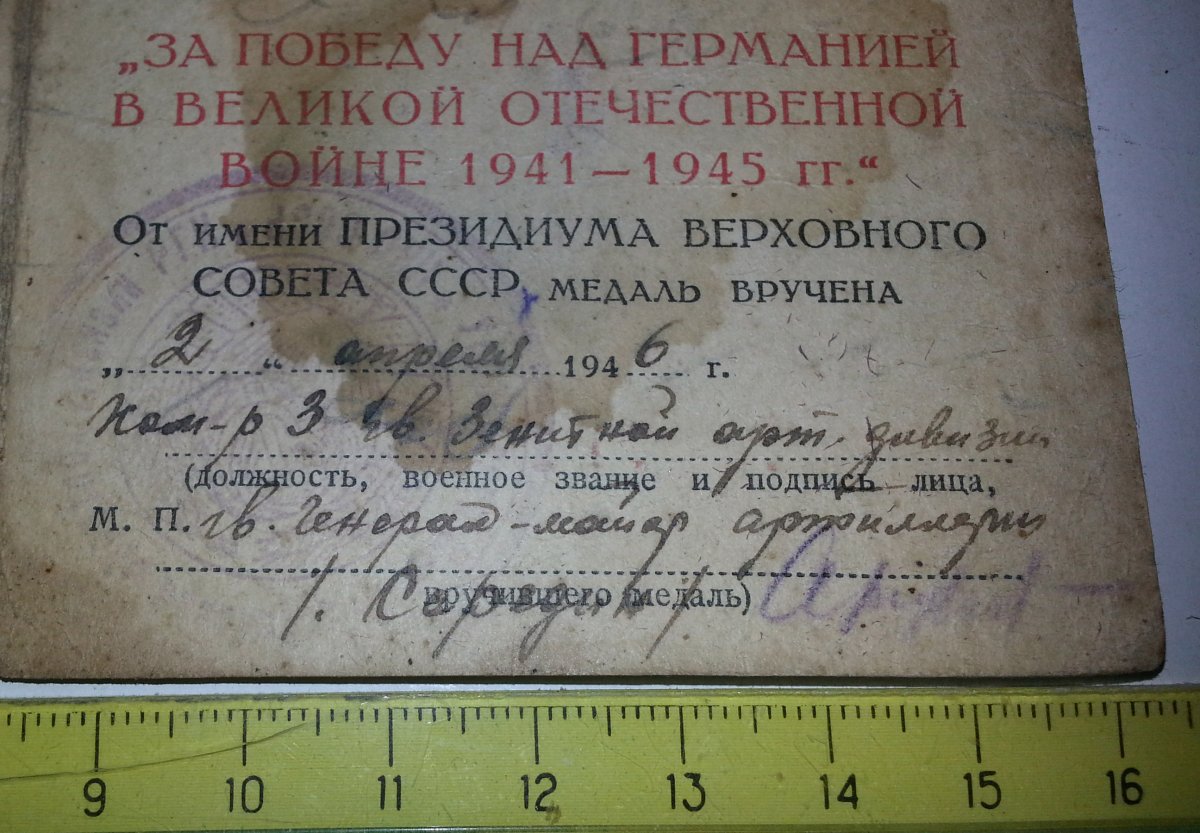 „ЗА ПОБЕДУ НАД ГЕРМАНИЕЙ
В ВЕЛИКОЙ ОТЕЧЕСТВЕННОЙ
ВОЙНЕ 1941—1945 гг.“
От имени ПРЕЗИДИУМА ВЕРХОВНОГО
СОВЕТА СССР медаль вручена
„2“ апреля 1946 г.
Ком-р 3 гв. Зенитной арт. дивизии
(должность, военное звание и подпись лица,
М. П. гв. Генерал-майор артиллерии
вручившего медаль)
9 10 11 12 13 14 15 16